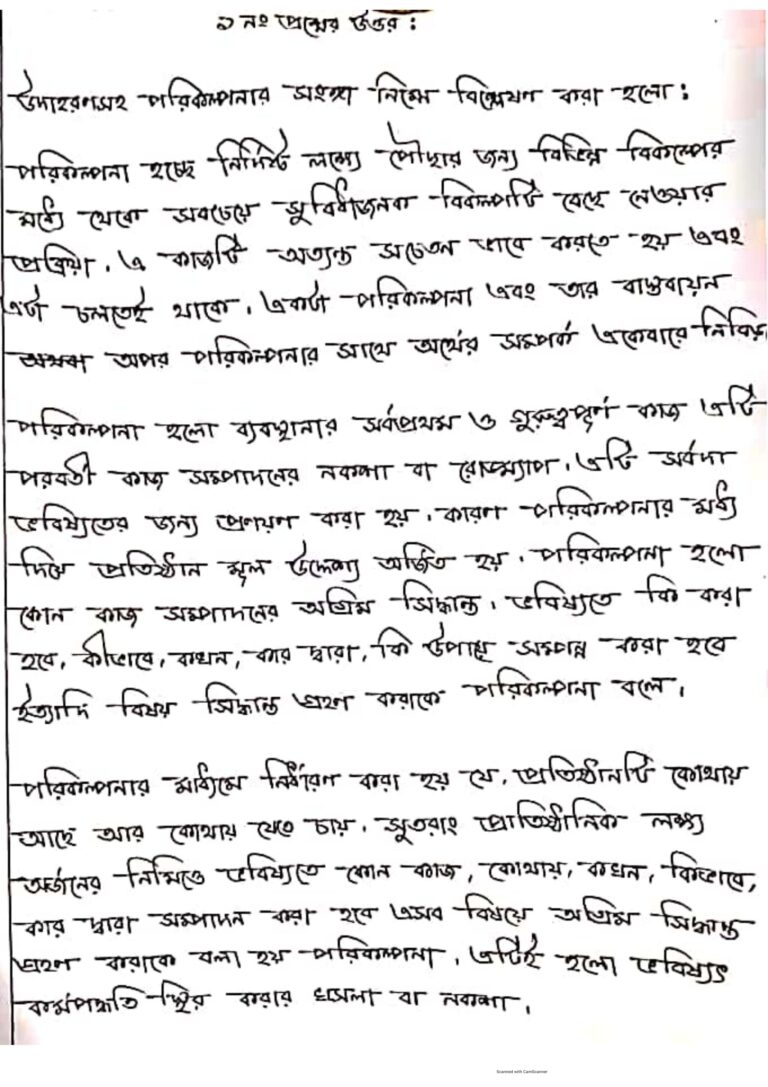 ১ নং প্রশ্নের উত্তর :
উদাহরণসহ পরিকল্পনার সংজ্ঞা নিম্নে বিশ্লেষণ করা হলো :
পরিকল্পনা হচ্ছে নির্দিষ্ট লক্ষ্যে পৌছার জন্য বিভিন্ন বিকল্পের
মধ্যে থেকে সবচেয়ে সুবিধাজনক বিকল্পটি বেছে নেওয়ার
প্রক্রিয়া। এ কাজটি অত্যন্ত সচেতন ভাবে করতে হয় এবং
এটা চলতেই থাকে। একটা পরিকল্পনা এবং তার বাস্তবায়ন
অথবা অপর পরিকল্পনার সাথে অর্থের সম্পর্ক একেবারে নিবিড়
পরিকল্পনা হলো ব্যবস্থানার সর্বপ্রথম ও গুরুত্বপূর্ণ কাজ এটি
পরবর্তী কাজ সম্পাদনের নকশা বা রোডম্যাপ। এটি সর্বদা
ভবিষ্যতের জন্য প্রণয়ণ করা হয়। কারণ পরিকল্পনার মধ্য
দিয়ে প্রতিষ্ঠান মূল উদ্দেশ্য অর্জিত হয়। পরিকল্পনা হলো
কোন কাজ সম্পাদনের অগ্রিম সিদ্ধান্ত। ভবিষ্যতে কি করা
হবে, কীভাবে, কখন, কার দ্বারা, কি উপায়ে সম্পন্ন করা হবে
ইত্যাদি বিষয় সিদ্ধান্ত গ্রহণ করাকে পরিকল্পনা বলে।
পরিকল্পনার মাধ্যমে নির্ধারণ করা হয় যে, প্রতিষ্ঠানটি কোথায়
আছে আর কোথায় যেতে চায়। সুতরাং প্রাতিষ্ঠানিক লক্ষ্য
অর্জনের নিমিত্তে ভবিষ্যতে কোন কাজ, কোথায়, কখন, কিভাবে,
কার দ্বারা সম্পাদন করা হবে এসব বিষয়ে অগ্রিম সিদ্ধান্ত
গ্রহণ করাকে বলা হয় পরিকল্পনা। এটিই হলো ভবিষ্যৎ
কর্মপদ্ধতি স্থির করার খসলা বা নকশা।
Scanned with CamScanner